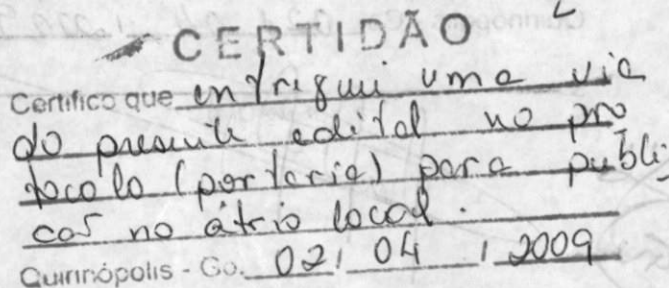 CERTIDÃO
Certifico que entriguei uma via
do presente edital no pro
tocolo (portaria) para publi
car no átrio local.
Quirinópolis - Go. 02 / 04 / 2009